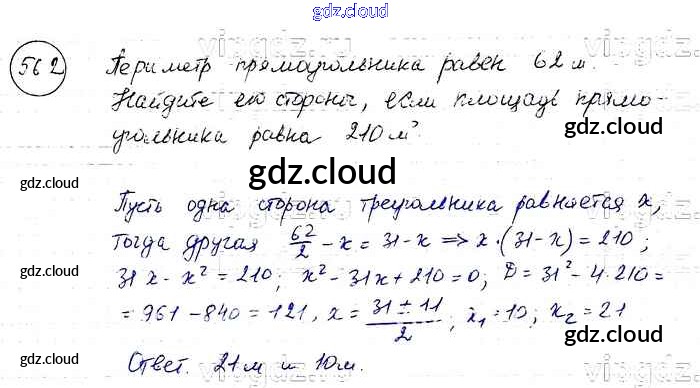 gdz.cloud
562 Периметр прямоугольника равен 62 м.
Найдите его стороны, если площадь прямо-
угольника равна 210 м².
gdz.cloud
gdz.cloud
gdz.cloud
Пусть одна сторона треугольника равняется x,
gdz.cloud
gdz.cloud
тогда другая 62/2 - x = 31 - x ⇒ x · (31 - x) = 210;
31x - x² = 210; x² - 31x + 210 = 0; D = 31² - 4·210 =
gdz.cloud
gdz.cloud
= 961 - 840 = 121, x = (31 ± 11)/2; x₁ = 10; x₂ = 21
Ответ. 21 м и 10 м.
gdz.cloud
gdz.cloud